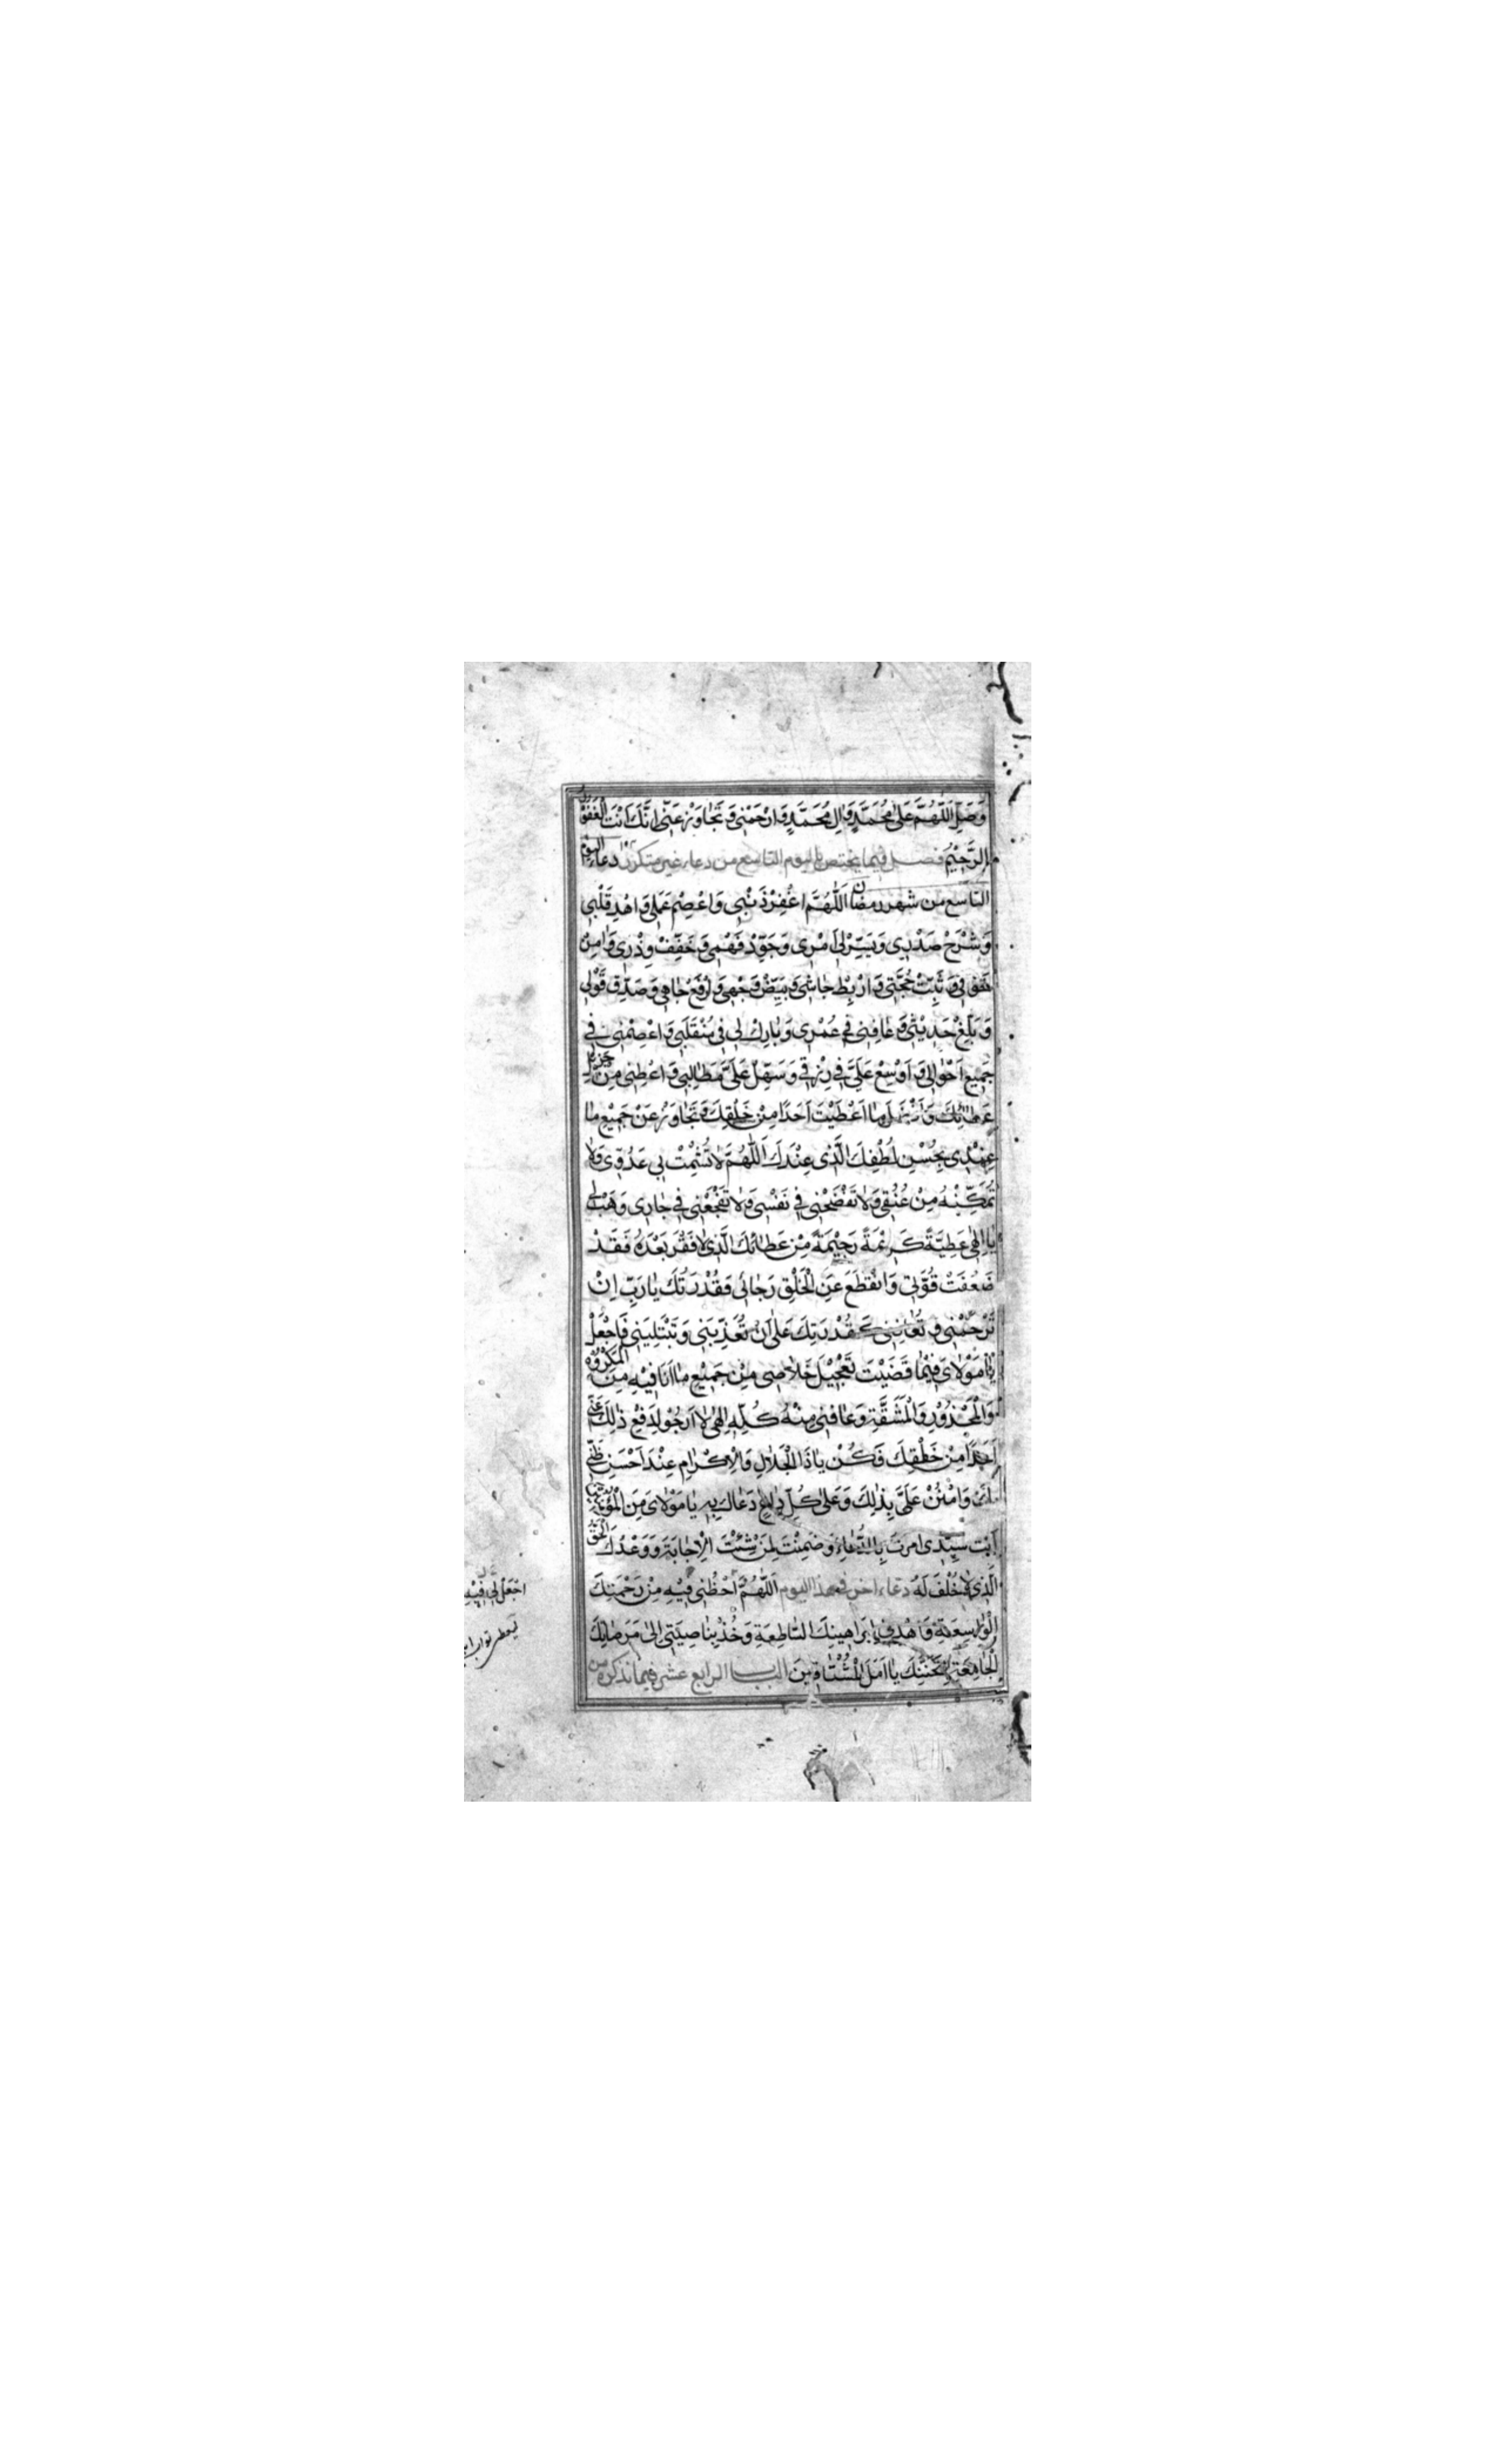 وَصَلِّ اللّٰهُمَّ عَلىٰ مُحَمَّدٍ وَاٰلِ مُحَمَّدٍ وَارْحَمْنِي وَتَجٰاوَزْ عَنّي اِنَّكَ اَنْتَ الْغَفُورُ
الرَّحِيمُ فصل فيما يختص باليوم التاسع من دعاء غير متكرر دعاء اليوم
التاسع من شهر رمضان اَللّٰهُمَّ اغْفِرْ ذَنْبِي وَاعْصِمْ عَمَلِي وَاهْدِ قَلْبِي
وَشْرَحْ صَدْرِي وَيَسِّرْ لِي اَمْرِي وَجَوِّدْ فَهْمِي وَخَفِّفْ وِزْرِي وَاٰمِنْ
خَوْفِي وَثَبِّتْ حُجَّتِي وَارْبِطْ جَاشِي وَبَيِّضْ وَجْهِي وَارْفَعْ جَاهِي وَصَدِّقْ قَوْلِي
وَبَلِّغْ حَدِيْثِي وَعَافِنِي فِي عُمْرِي وَبَارِكْ لِي فِي مُنْقَلَبِي وَاعْصِمْنِي فِي
جَمِيعِ اَحْوَالِي وَاَوْسِعْ عَلَيَّ فِي رِزْقِي وَسَهِّلْ عَلَيَّ مَطَالِبِي وَاعْطِنِي مِنْ جَزِيلِ
عَطَائِكَ وَ مَا اَعْطَيْتَ اَحَدًا مِنْ خَلْقِكَ وَتَجَاوَزْ عَنْ جَمِيْعِ مَا
عِنْدِي بِحُسْنِ لُطْفِكَ الَّذِي عِنْدَكَ اَللّٰهُمَّ لَا تُشْمِتْ بِي عَدُوِّي وَلَا
تُمَكِّنْهُ مِنْ عُنُقِي وَلَا تَفْضَحْنِي فِي نَفْسِي وَلَا تَفْجَعْنِي فِي جَارِي وَهَبْ لِي
يَا اِلٰهِي عَطِيَّةً كَرِيْمَةً رَحِيْمَةً مِنْ عَطَائِكَ الَّذِي لَا فَقْرَ بَعْدَهُ فَقَدْ
ضَعُفَتْ قُوَّتِي وَانْقَطَعَ عَنِ الْخَلْقِ رَجَائِي فَقُدْرَتُكَ يَا رَبِّ اِنْ
تَرْحَمْنِي وَتُعَافِنِي كَقُدْرَتِكَ عَلىٰ اَنْ تُعَذِّبَنِي وَتَبْتَلِيَنِي فَاجْعَلْ
يَا مَوْلَايَ فِيْمَا قَضَيْتَ تَعْجِيْلَ خَلَاصِي مِنْ جَمِيْعِ مَا اَنَا فِيْهِ مِنَ الْمَكْرُوهِ
وَالْمَحْذُوْرِ وَالْمَشَقَّةِ وَعَافِنِي مِنْهُ كُلِّهِ اِلٰهِي لَا اَرْجُو لِدَفْعِ ذٰلِكَ عَنِّي
اَحَدًا مِنْ خَلْقِكَ فَكُنْ يَا ذَا الْجَلَالِ وَالْاِكْرَامِ عِنْدَ اَحْسَنِ ظَنِّي
وَامْنُنْ عَلَيَّ بِذٰلِكَ وَعَلىٰ كُلِّ دَاعٍ دَعَاكَ بِهِ يَا مَوْلَايَ مِنَ الْمُؤْمِنِينَ
اَنْتَ سَيِّدِي اَمَرْتَ بِالدُّعَاءِ وَضَمِنْتَ لِمَنْ شِئْتَ الْاِجَابَةَ وَوَعْدُكَ الْحَقُّ
الَّذِي لَا خُلْفَ لَهُ دعاء اخر في هذا اليوم اَللّٰهُمَّ اجْعَلْ لِي فِيْهِ مِنْ رَحْمَتِكَ
الْوَاسِعَةِ وَاهْدِنِي بِبَرَاهِينِكَ السَّاطِعَةِ وَخُذْ بِنَاصِيَتِي اِلىٰ مَرْضَاتِكَ
الْجَامِعَةِ بِمَحَبَّتِكَ يَا اَمَلَ الْمُشْتَاقِينَ الباب الرابع عشر فيما نذكره من
اجْعَلْ لِي فِيْهِ